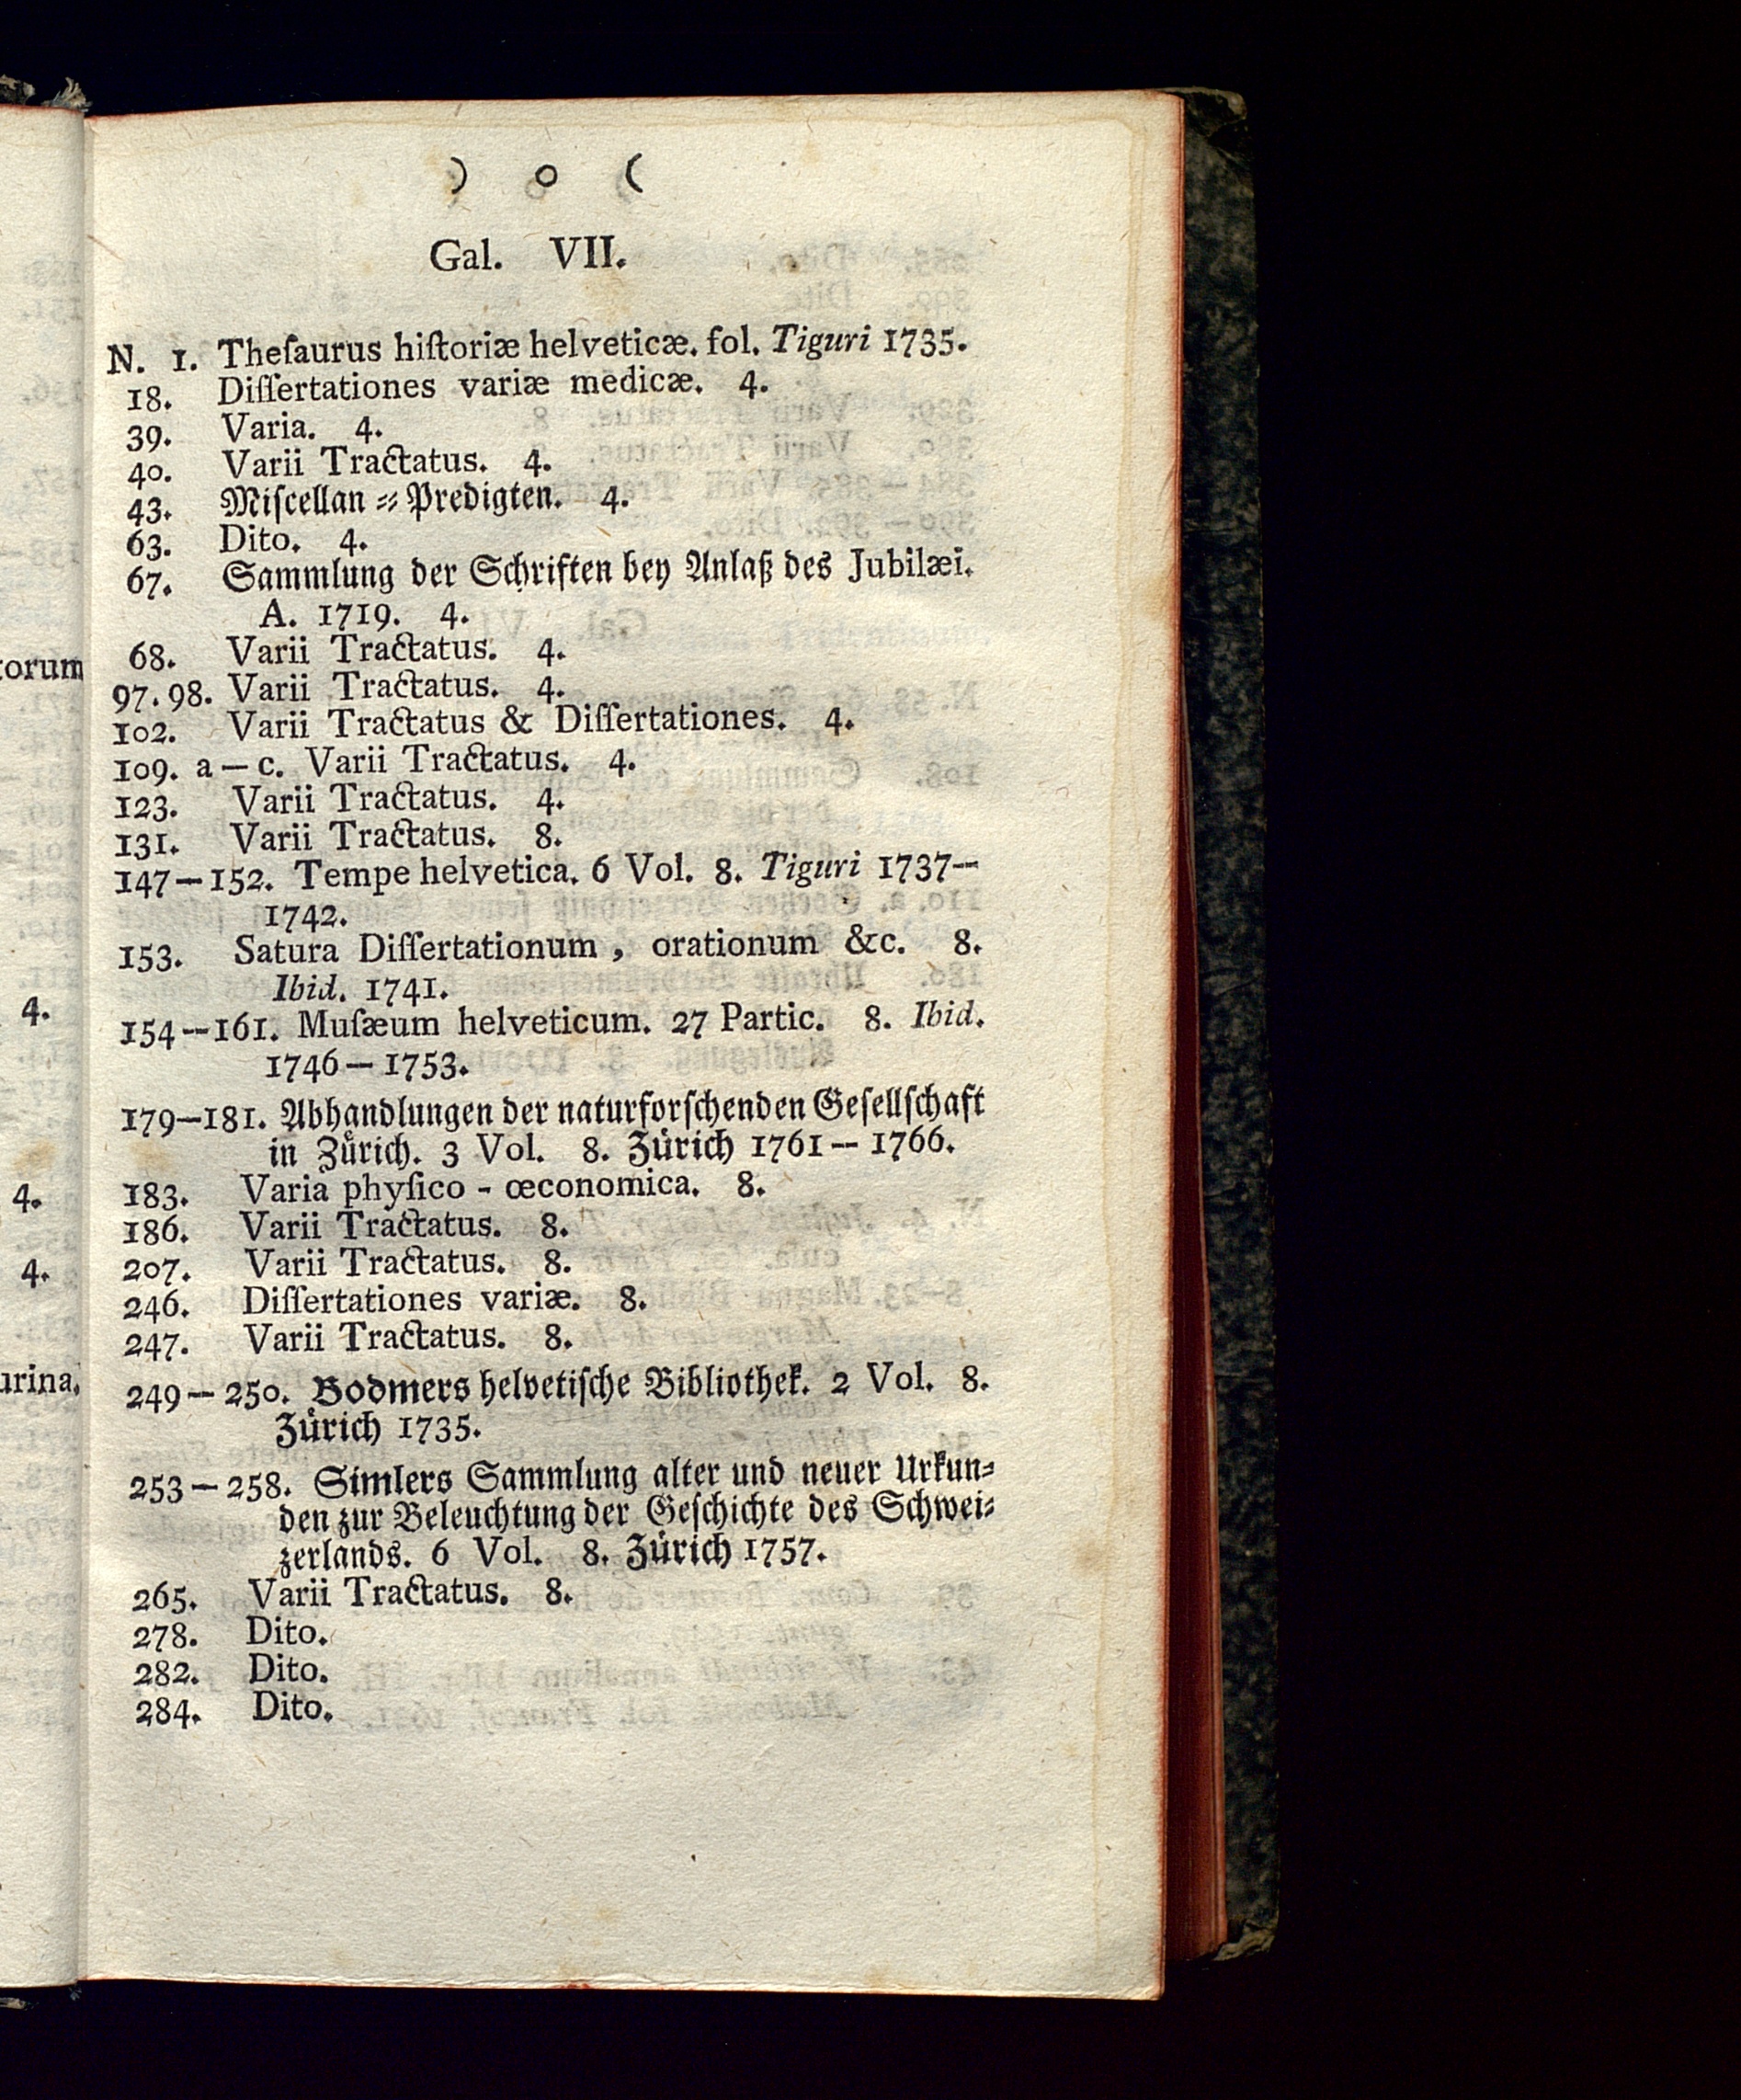 ) o (
Gal. VII.
N. 1. Theſaurus hiſtoriæ helveticæ. fol. Tiguri 1735.
18. Diſſertationes variæ medicæ. 4.
39. Varia. 4.
40. Varii Tractatus. 4.
43. Miſcellan⸗Predigten. 4.
63. Dito. 4.
67. Sammlung der Schriften bey Anlaß des Jubilæi.
A. 1719. 4.
68. Varii Tractatus. 4.
97. 98. Varii Tractatus. 4.
102. Varii Tractatus & Diſſertationes. 4.
109. a — c. Varii Tractatus. 4.
123. Varii Tractatus. 4.
131. Varii Tractatus. 8.
147—152. Tempe helvetica. 6 Vol. 8. Tiguri 1737—
1742.
153. Satura Diſſertationum, orationum &c. 8.
Ibid. 1741.
154—161. Muſæum helveticum. 27 Partic. 8. Ibid.
1746—1753.
179—181. Abhandlungen der naturforſchenden Geſellſchaft
in Zürich. 3 Vol. 8. Zürich 1761—1766.
183. Varia phyſico-œconomica. 8.
186. Varii Tractatus. 8.
207. Varii Tractatus. 8.
246. Diſſertationes variæ. 8.
247. Varii Tractatus. 8.
249—250. Bodmers helvetiſche Bibliothek. 2 Vol. 8.
Zürich 1735.
253—258. Simlers Sammlung alter und neuer Urkun⸗
den zur Beleuchtung der Geſchichte des Schwei⸗
zerlands. 6 Vol. 8. Zürich 1757.
265. Varii Tractatus. 8.
278. Dito.
282. Dito.
284. Dito.